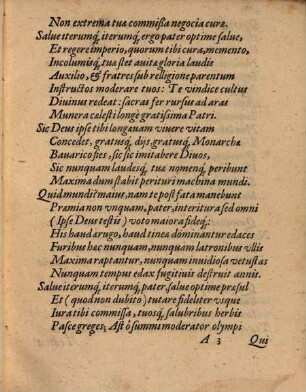 Non extrema tua commißa negocia curæ.
Salue iterumq́, iterumq́, ergo pater optime salue,
Et regere imperio, quorum tibi cura, memento,
Incolumisq́, tua stet auita gloria laudis
Auxilio, & fratres sub relligione parentum
Instructos moderare tuos: Te vindice cultus
Diuinus redeat: sacras fer rursus ad aras
Munera cælesti longè gratißima Patri.
Sic Deus ipse tibi longæuam viuere vitam
Concedet, gratusq́, dijs, gratusq́, Monarchæ
Bauarico sies, sic sic imitabere Diuos,
Sic nunquam laudesq́, tuæ nomenq́, peribunt
Maxima dum stabit perituri machina mundi.
Quid mundi? maior, nam te post fata manebunt
Præmia non vnquam, pater, interitura sed omni
(Ipse Deus testis) voto maiora fideq́;:
His haud ærugo, haud tinea dominantur edaces
Furibus hæc nunquam, nunquam latronibus vllis
Maxima raptantur, nunquam inuidiosa vetustas
Nunquam tempus edax fugitiuis destruit annis.
Salue iterumq́, iterumq́, pater, salue optime præsul
Et (quod non dubito) tutare fideliter vsque
Iura tibi commissa, tuosq́, salubribus herbis
Pasce greges, Ast ô summi moderator olympi
A 3 Qui